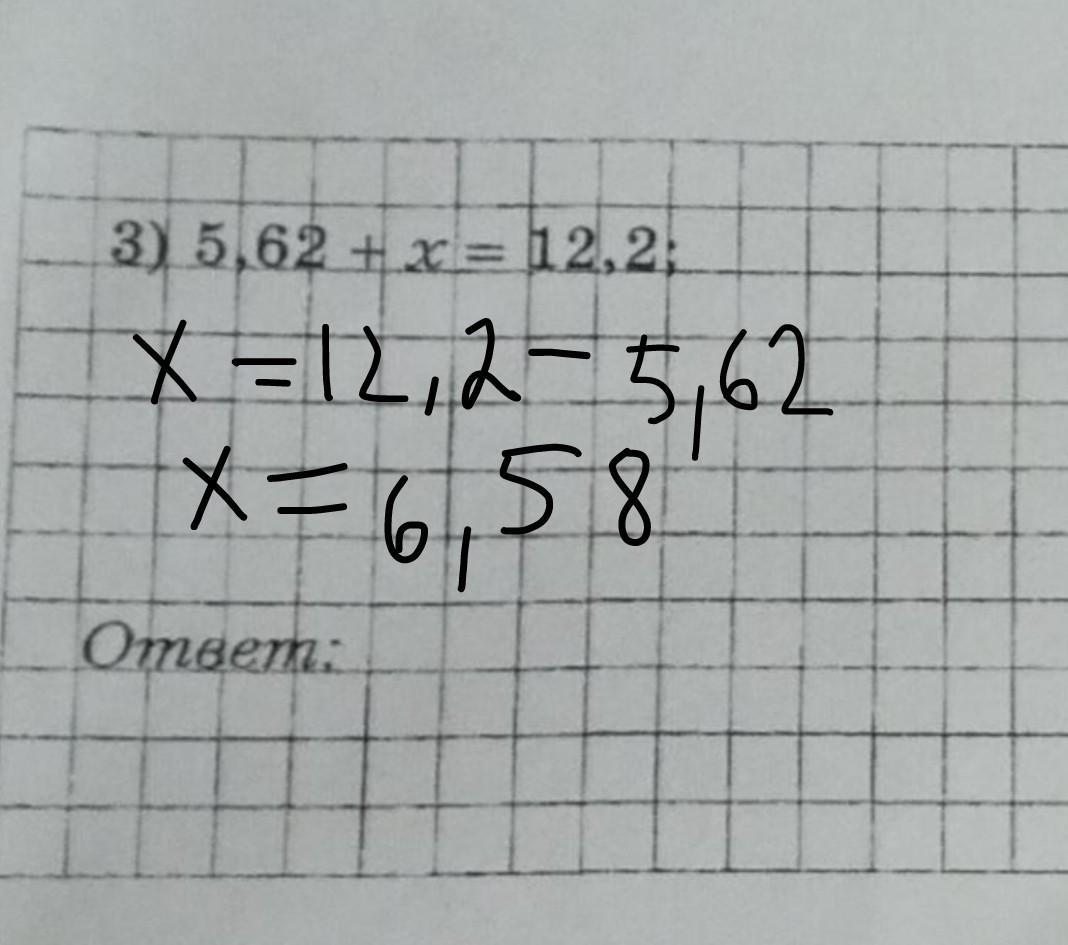 3) 5,62 + x = 12,2;
x = 12,2 - 5,62
x = 6,58
Ответ: